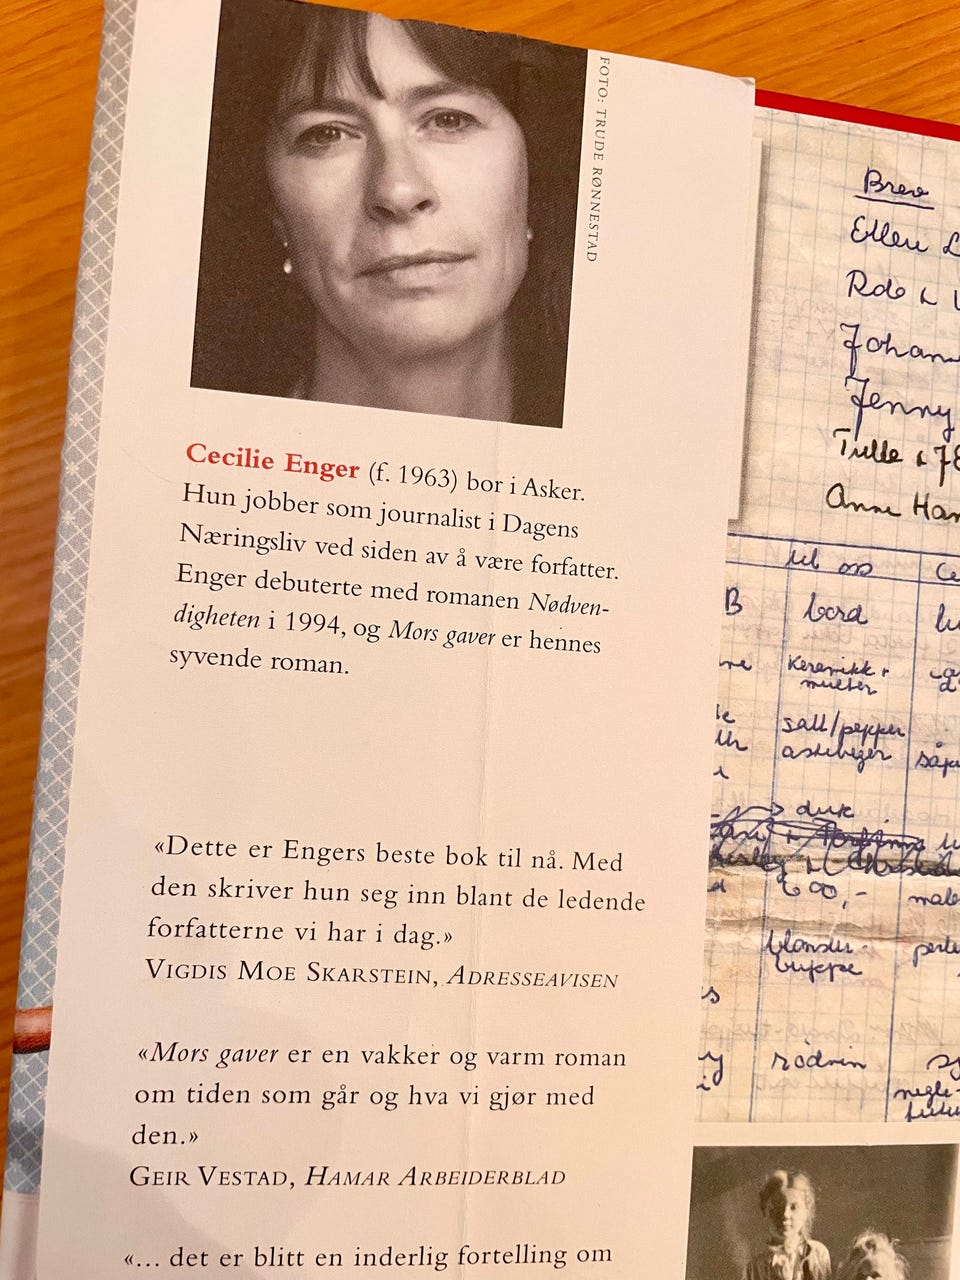 FOTO: TRUDE RØNNESTAD
Cecilie Enger (f. 1963) bor i Asker.
Hun jobber som journalist i Dagens
Næringsliv ved siden av å være forfatter.
Enger debuterte med romanen Nødven-
digheten i 1994, og Mors gaver er hennes
syvende roman.
«Dette er Engers beste bok til nå. Med
den skriver hun seg inn blant de ledende
forfatterne vi har i dag.»
VIGDIS MOE SKARSTEIN, ADRESSEAVISEN
«Mors gaver er en vakker og varm roman
om tiden som går og hva vi gjør med
den.»
GEIR VESTAD, HAMAR ARBEIDERBLAD
«... det er blitt en inderlig fortelling om
Brev
Ellen
Johann
Jenny
Tulle +
Anne Han
til oss
B bord
keramikk +
multer
salt/pepper
askebeger
duk
600,-
blomster-
rødvin